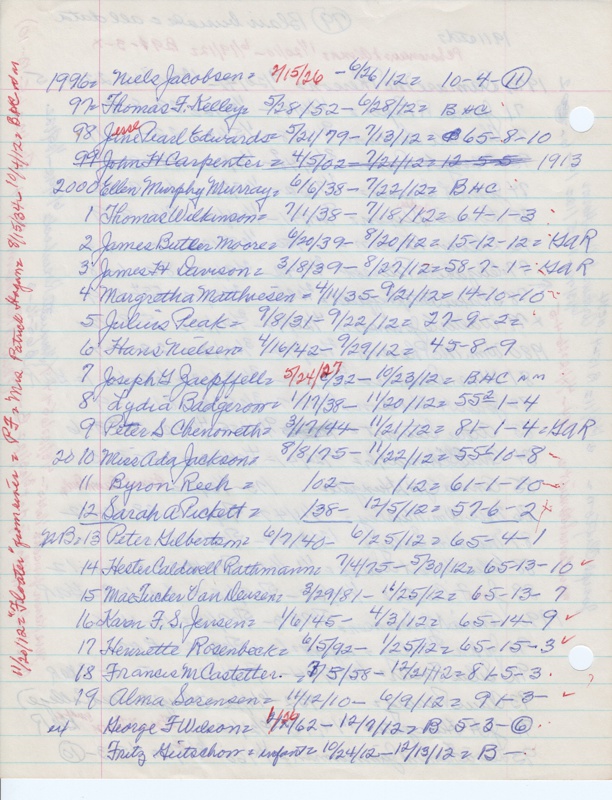 1996= Niels Jacobsen= 7/15/26 - 6/26/12= 10-4-11
97= Thomas F. Kelley= 5/28/52- 6/28/12= BHC
98 Jane Pearl Edwards= 5/21/79- 7/13/12= 65-8-10
Jesse
99 John H Carpenter= 4/5/02= 7/21/12= 12-5-5 1913
2000 Ellen Murphy Murray= 6/6/38- 7/22/12= BHC
1 Thomas Wilkinson= 7/1/38- 7/18/12= 64-1-3
2 James Butler Moore= 6/20/39- 8/20/12= 15-12-12= GAR
3 James H Davison= 3/8/39- 8/27/12= 58-7-1= GAR
4 Margretha Matthiesen= 4/11/35- 9/21/12= 14-10-10
5 Julius Peak= 9/8/31- 9/22/12= 27-9-2=
6 Hans Nielsen= 4/16/42- 9/29/12= 45-8-9
7 Joseph G Zaepffell= 5/24/27 /32- 10/23/12= BHC nm
8 Lydia Badgerow= 1/17/38- 11/20/12= 552-1-4
9 Peter S Chenoweth= 3/17/44- 11/21/12= 81-1-4= GAR
2010 Miss Ada Jackson= 8/8/75- 11/22/12= 551-10-8
11 Byron Resh= /02- /12= 61-1-10
12 Sarah A Puckett= /38- 12/5/12= 57-6-2
NB=13 Peter Gilbertson= 6/7/40- 6/25/12= 65-4-1
14 Hester Caldwell Rathmann= 7/4/75- 5/30/12= 65-13-10
15 MacTucker Van Deusen= 3/29/81- /25/12= 65-13-7
16 Karen F. S. Jensen= 1/6/45- 4/3/12= 65-14-9
17 Henriette Rosenbeck= 6/5/92- 1/25/12= 65-15-3
18 Francis M Castetter= /5/58- 12/21/12= 81-5-3
19 Alma Sorensen= 11/12/10- 6/9/12= 91-3-
ex George F Wilson= /62- 12/9/12= B 5-3-6
Fritz Gutschow= infant= 10/24/12- 12/13/12= B-
11/20/12= "Floater" = PF= Mrs Patrick Hagin= 8/15/34= 10/4/12= BHC nm